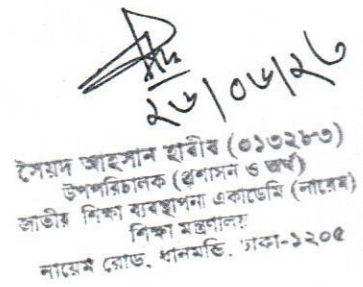 ২৬/০৬/২৩
সৈয়দ আহসান হাবীব (০১৩২৮৩)
উপপরিচালক (প্রশাসন ও অর্থ)
জাতীয় শিক্ষা ব্যবস্থাপনা একাডেমি (নায়েম)
শিক্ষা মন্ত্রণালয়
নায়েম রোড, ধানমন্ডি, ঢাকা-১২০৫